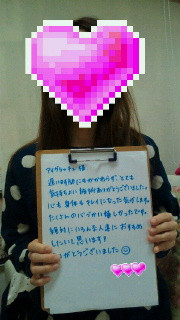 遅い時間にもかかわらず、とても
気持ちいい施術ありがとうございました。
心も身体もキレイになった気がします。
たくさんの心づかい嬉しかったです。
絶対にいろんな人達におすすめ
したいと思います!
ありがとうございました